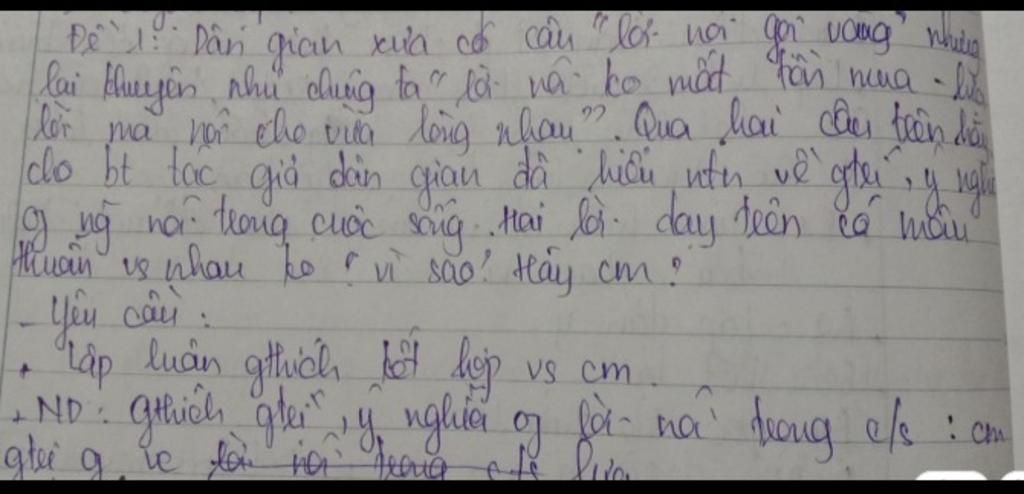 Đề 1: Dân gian xưa có câu "lời nói gói vàng" nhưng
lại khuyên nhủ chúng ta "lời nói ko mất tiền mua - lựa
lời mà nói cho vừa lòng nhau". Qua hai câu trên hãy
cho bt tác giả dân gian đã hiểu ntn về gtrị, ý nghĩa
nói trong cuộc sống. Hai lời dạy trên có mâu
thuẫn vs nhau ko? vì sao? Hãy cm?
- Yêu cầu:
+ Lập luận gthích kết hợp vs cm.
+ ND: gthích gtrị, ý nghĩa lời nói trong c/s: cm
gtrị lời nói trong c/s lựa